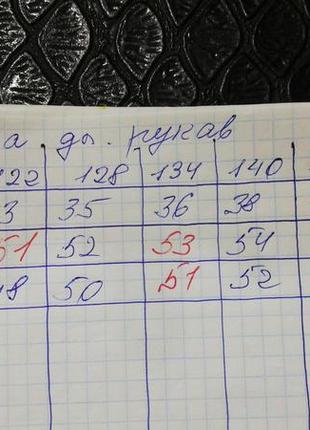 а ды. рукав
122 128 134 140
3 35 36 38
51 52 53 54
8 50 51 52